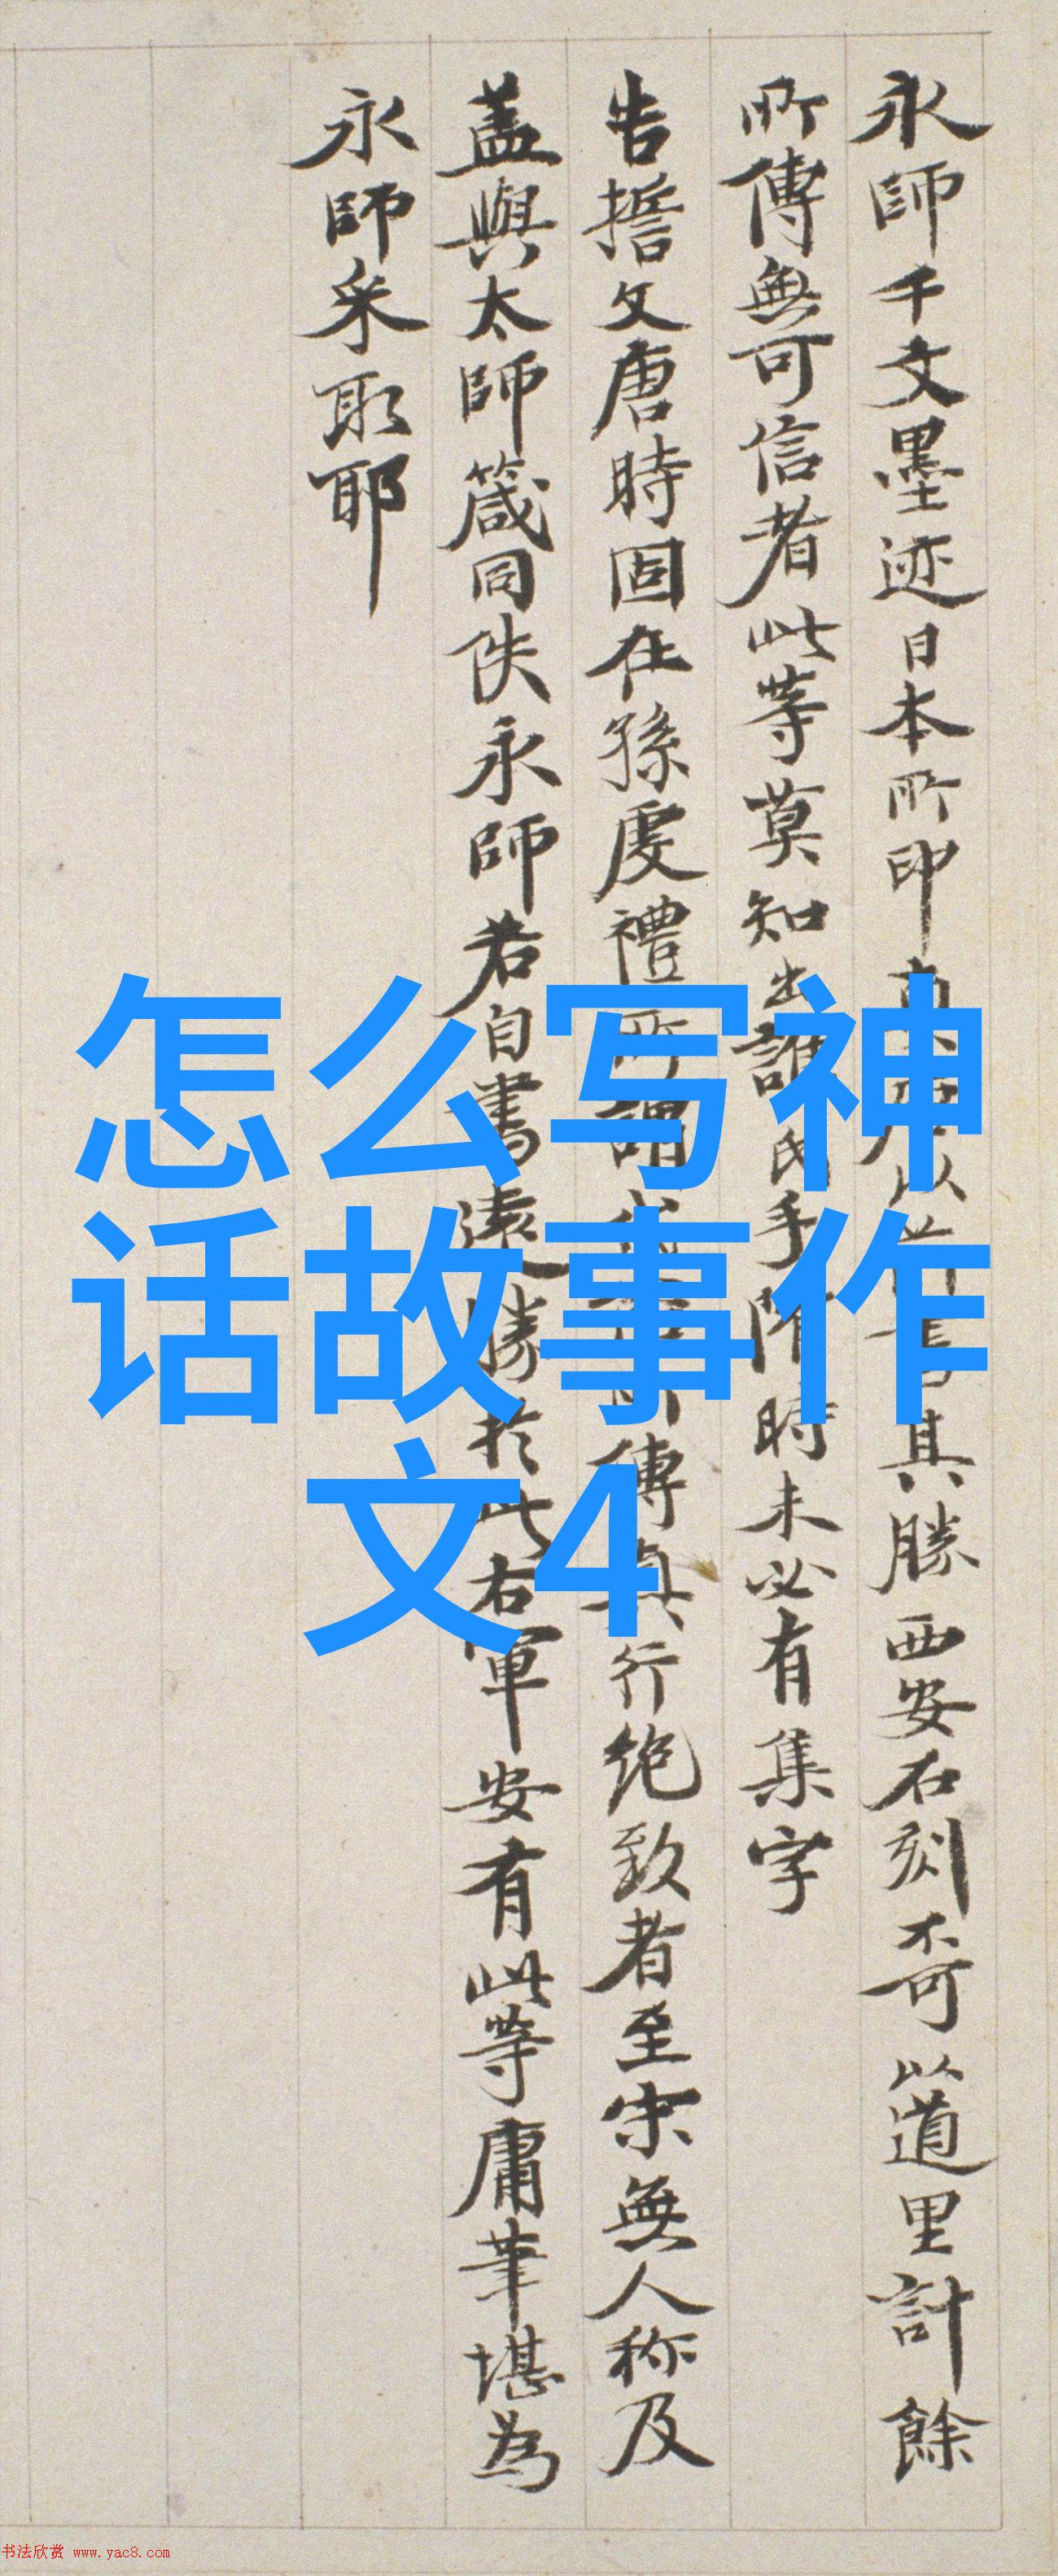 永師千文墨迹日本所印真唐以前書其勝西安石刻不可以道里計餘
所傳無可信者此等莫知出誰氏手隋時未必有集字
告擔文唐時固在孫虔禮所謂代俗所傳真行绝致者至宋無人称及
盖與太師箴同佚永師若自書遠勝於此右軍安有此等庸筆堪為
永師采取耶
怎么写神
话故事作
文4
书法欣赏 www.yac8.com